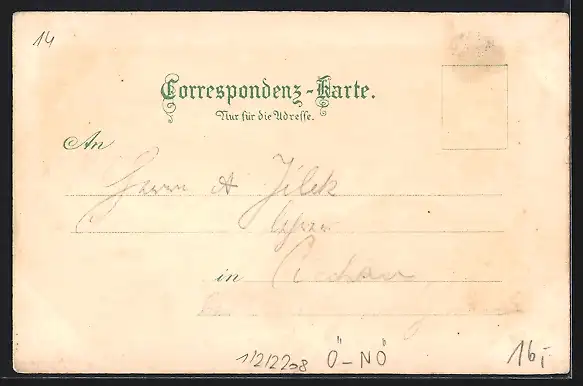 14
Correspondenz-Karte.
Nur für die Adresse.
An
Herrn A Jilek
Lehrer
in
1/2/2208 Ö-NÖ 16,-